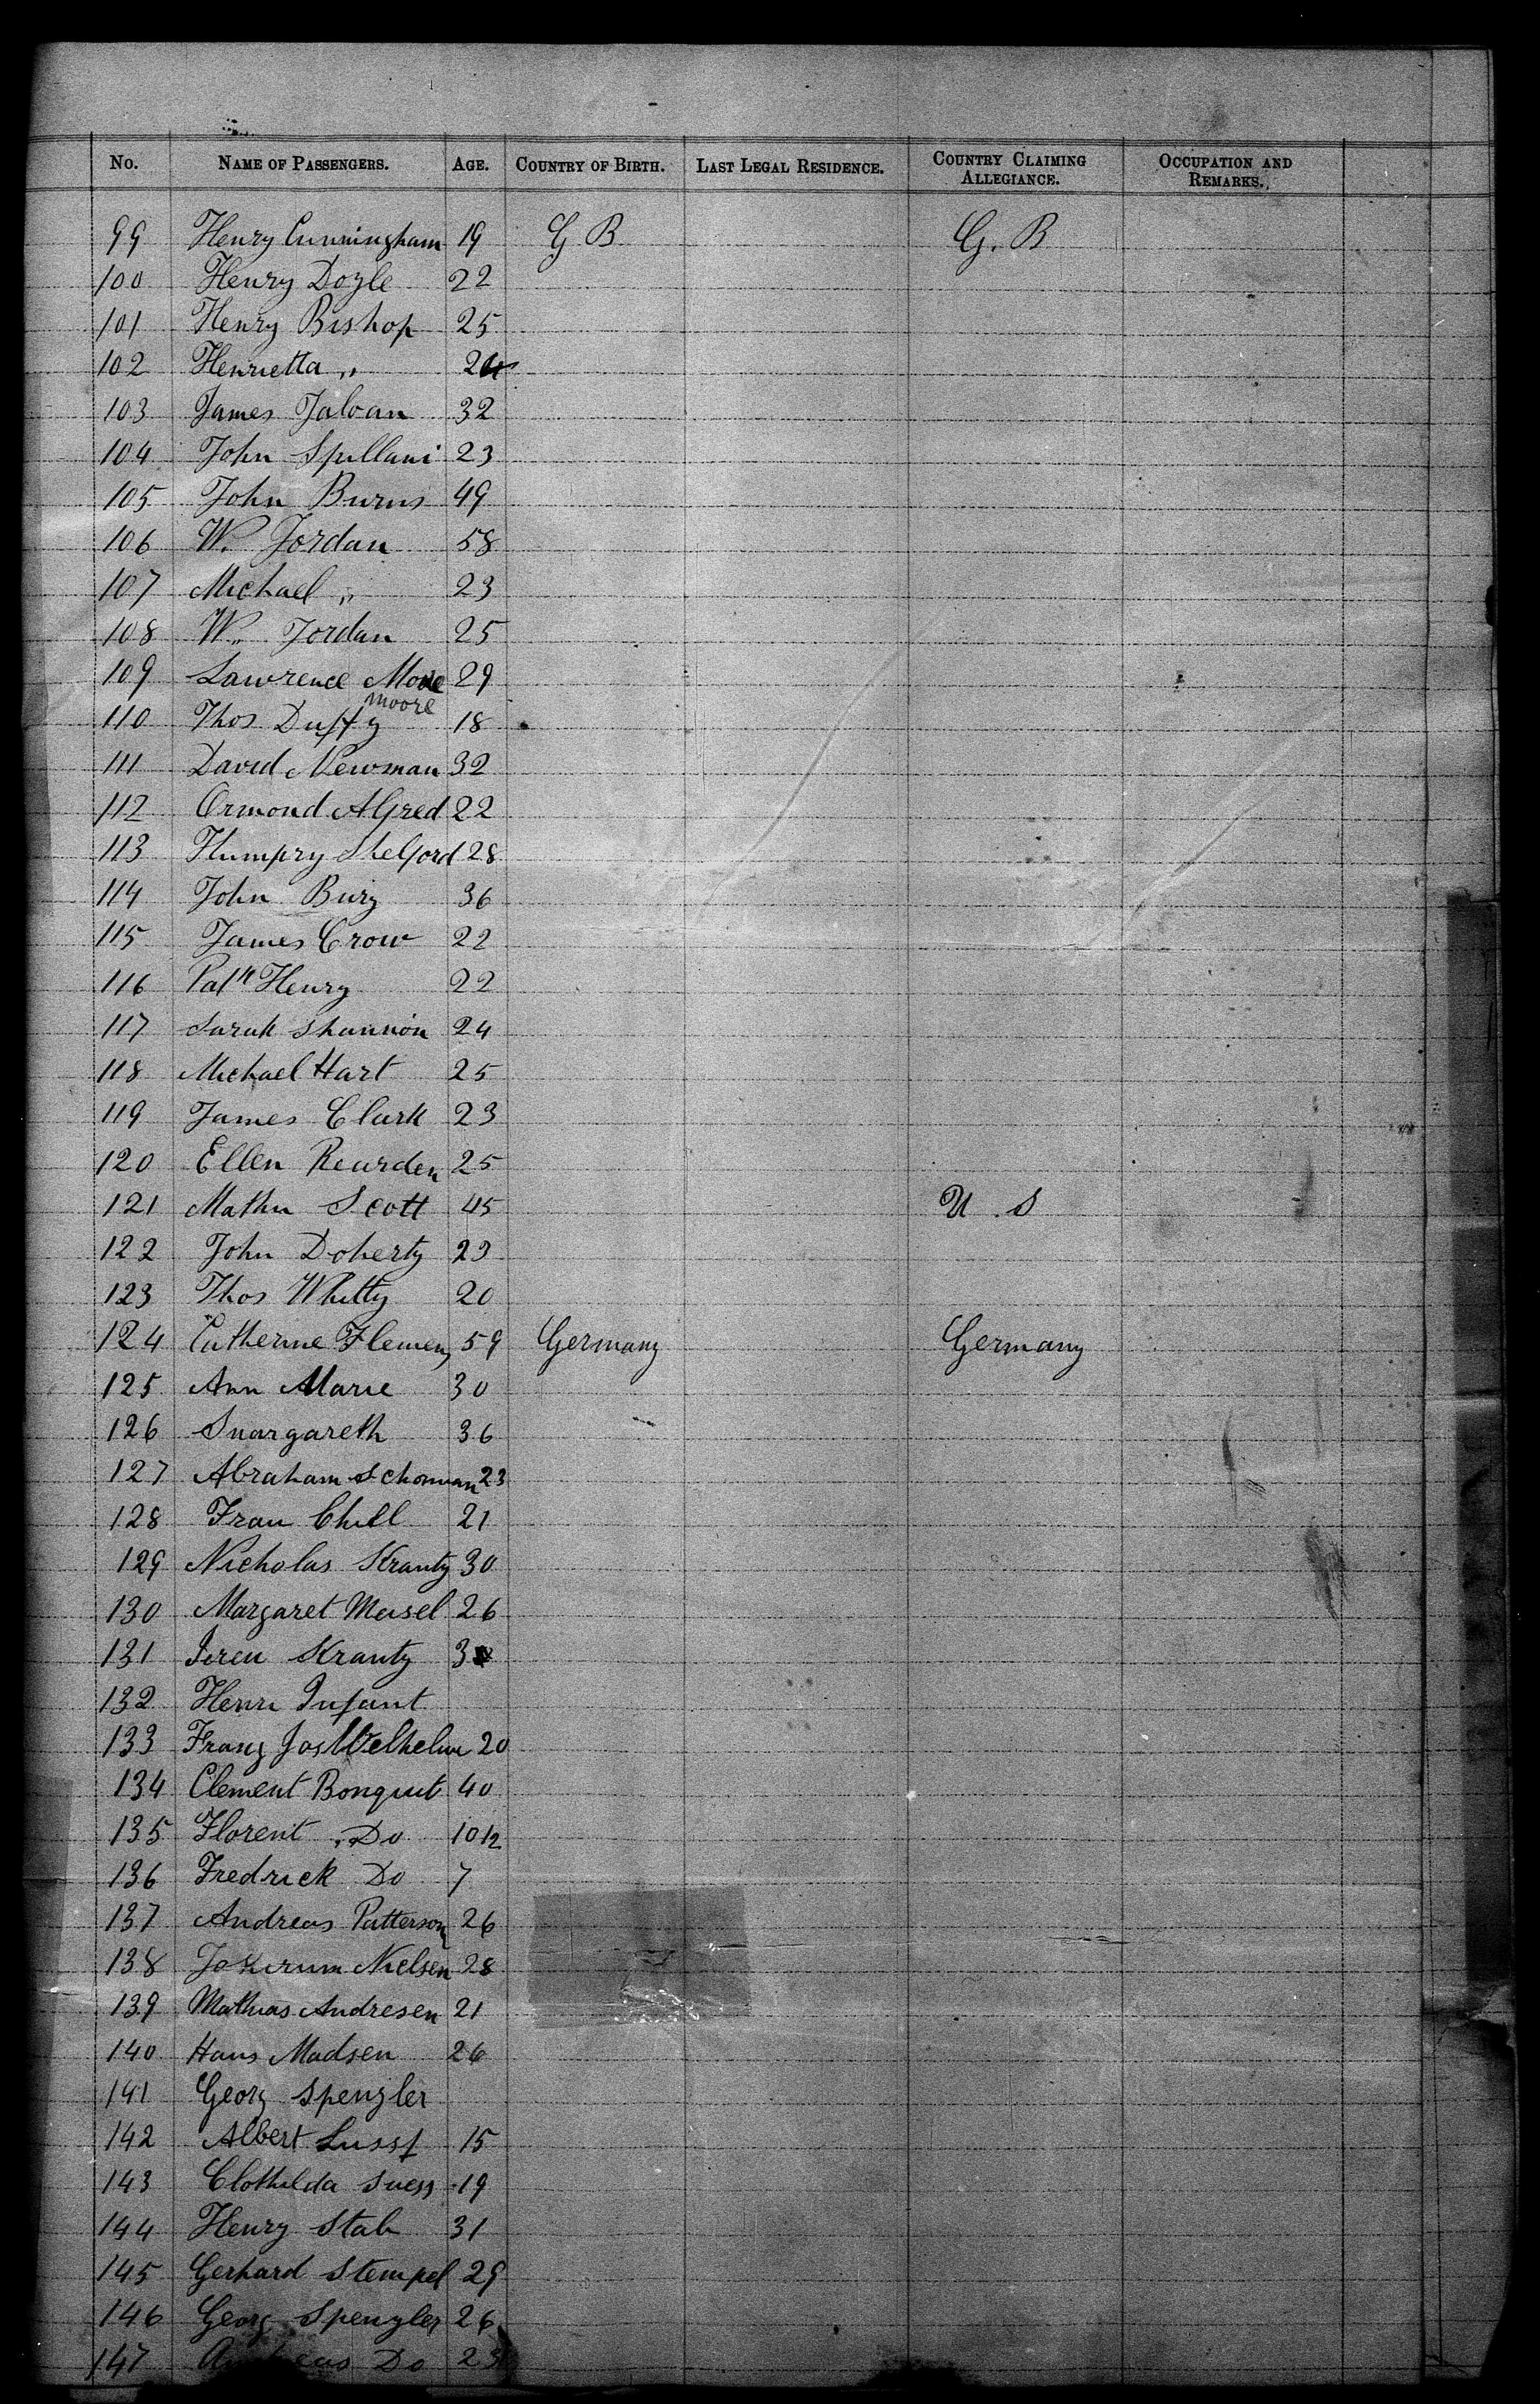 No. NAME OF PASSENGERS. AGE. COUNTRY OF BIRTH. LAST LEGAL RESIDENCE. COUNTRY CLAIMING ALLEGIANCE. OCCUPATION AND REMARKS.
99 Henry Cunningham 19 G B G. B
100 Henry Doyle 22
101 Henry Bishop 25
102 Henrietta " 24
103 James Jaloan 32
104 John Spillani 23
105 John Burns 49
106 W. Jordan 58
107 Michael " 23
108 W. Jordan 25
109 Lawrence Move 29
moore
110 Thos Duffy 18
111 David Newman 32
112 Ormond Alfred 22
113 Humpry Shelford 28
114 John Burg 36
115 James Crow 22
116 Patk Henry 22
117 Sarah Shannon 24
118 Michael Hart 25
119 James Clark 23
120 Ellen Rearden 25
121 Mathu Scott 45 U. S
122 John Doherty 23
123 Thos Whitty 20
124 Catherine Flemeng 59 Germany Germany
125 Ann Marie 30
126 Smargareth 36
127 Abraham Schouman 23
128 Frau Chill 21
129 Nicholas Krantz 30
130 Margaret Meisel 26
131 Krantz 3
132 Henri Infant
133 Franz Jos Welhelm 20
134 Clement Bonquit 40
135 Florent " Do 10 1/2
136 Fredrick Do 7
137 Andreas Patterson 26
138 Nielsen 28
139 Mathias Andresen 21
140 Hans Madsen 26
141 Georg Spengler
142 Albert 15
143 Clothilda Suess 19
144 Henry Stab 31
145 Gerhard Stempel 29
146 Georg Spengler 26
147 Do 23